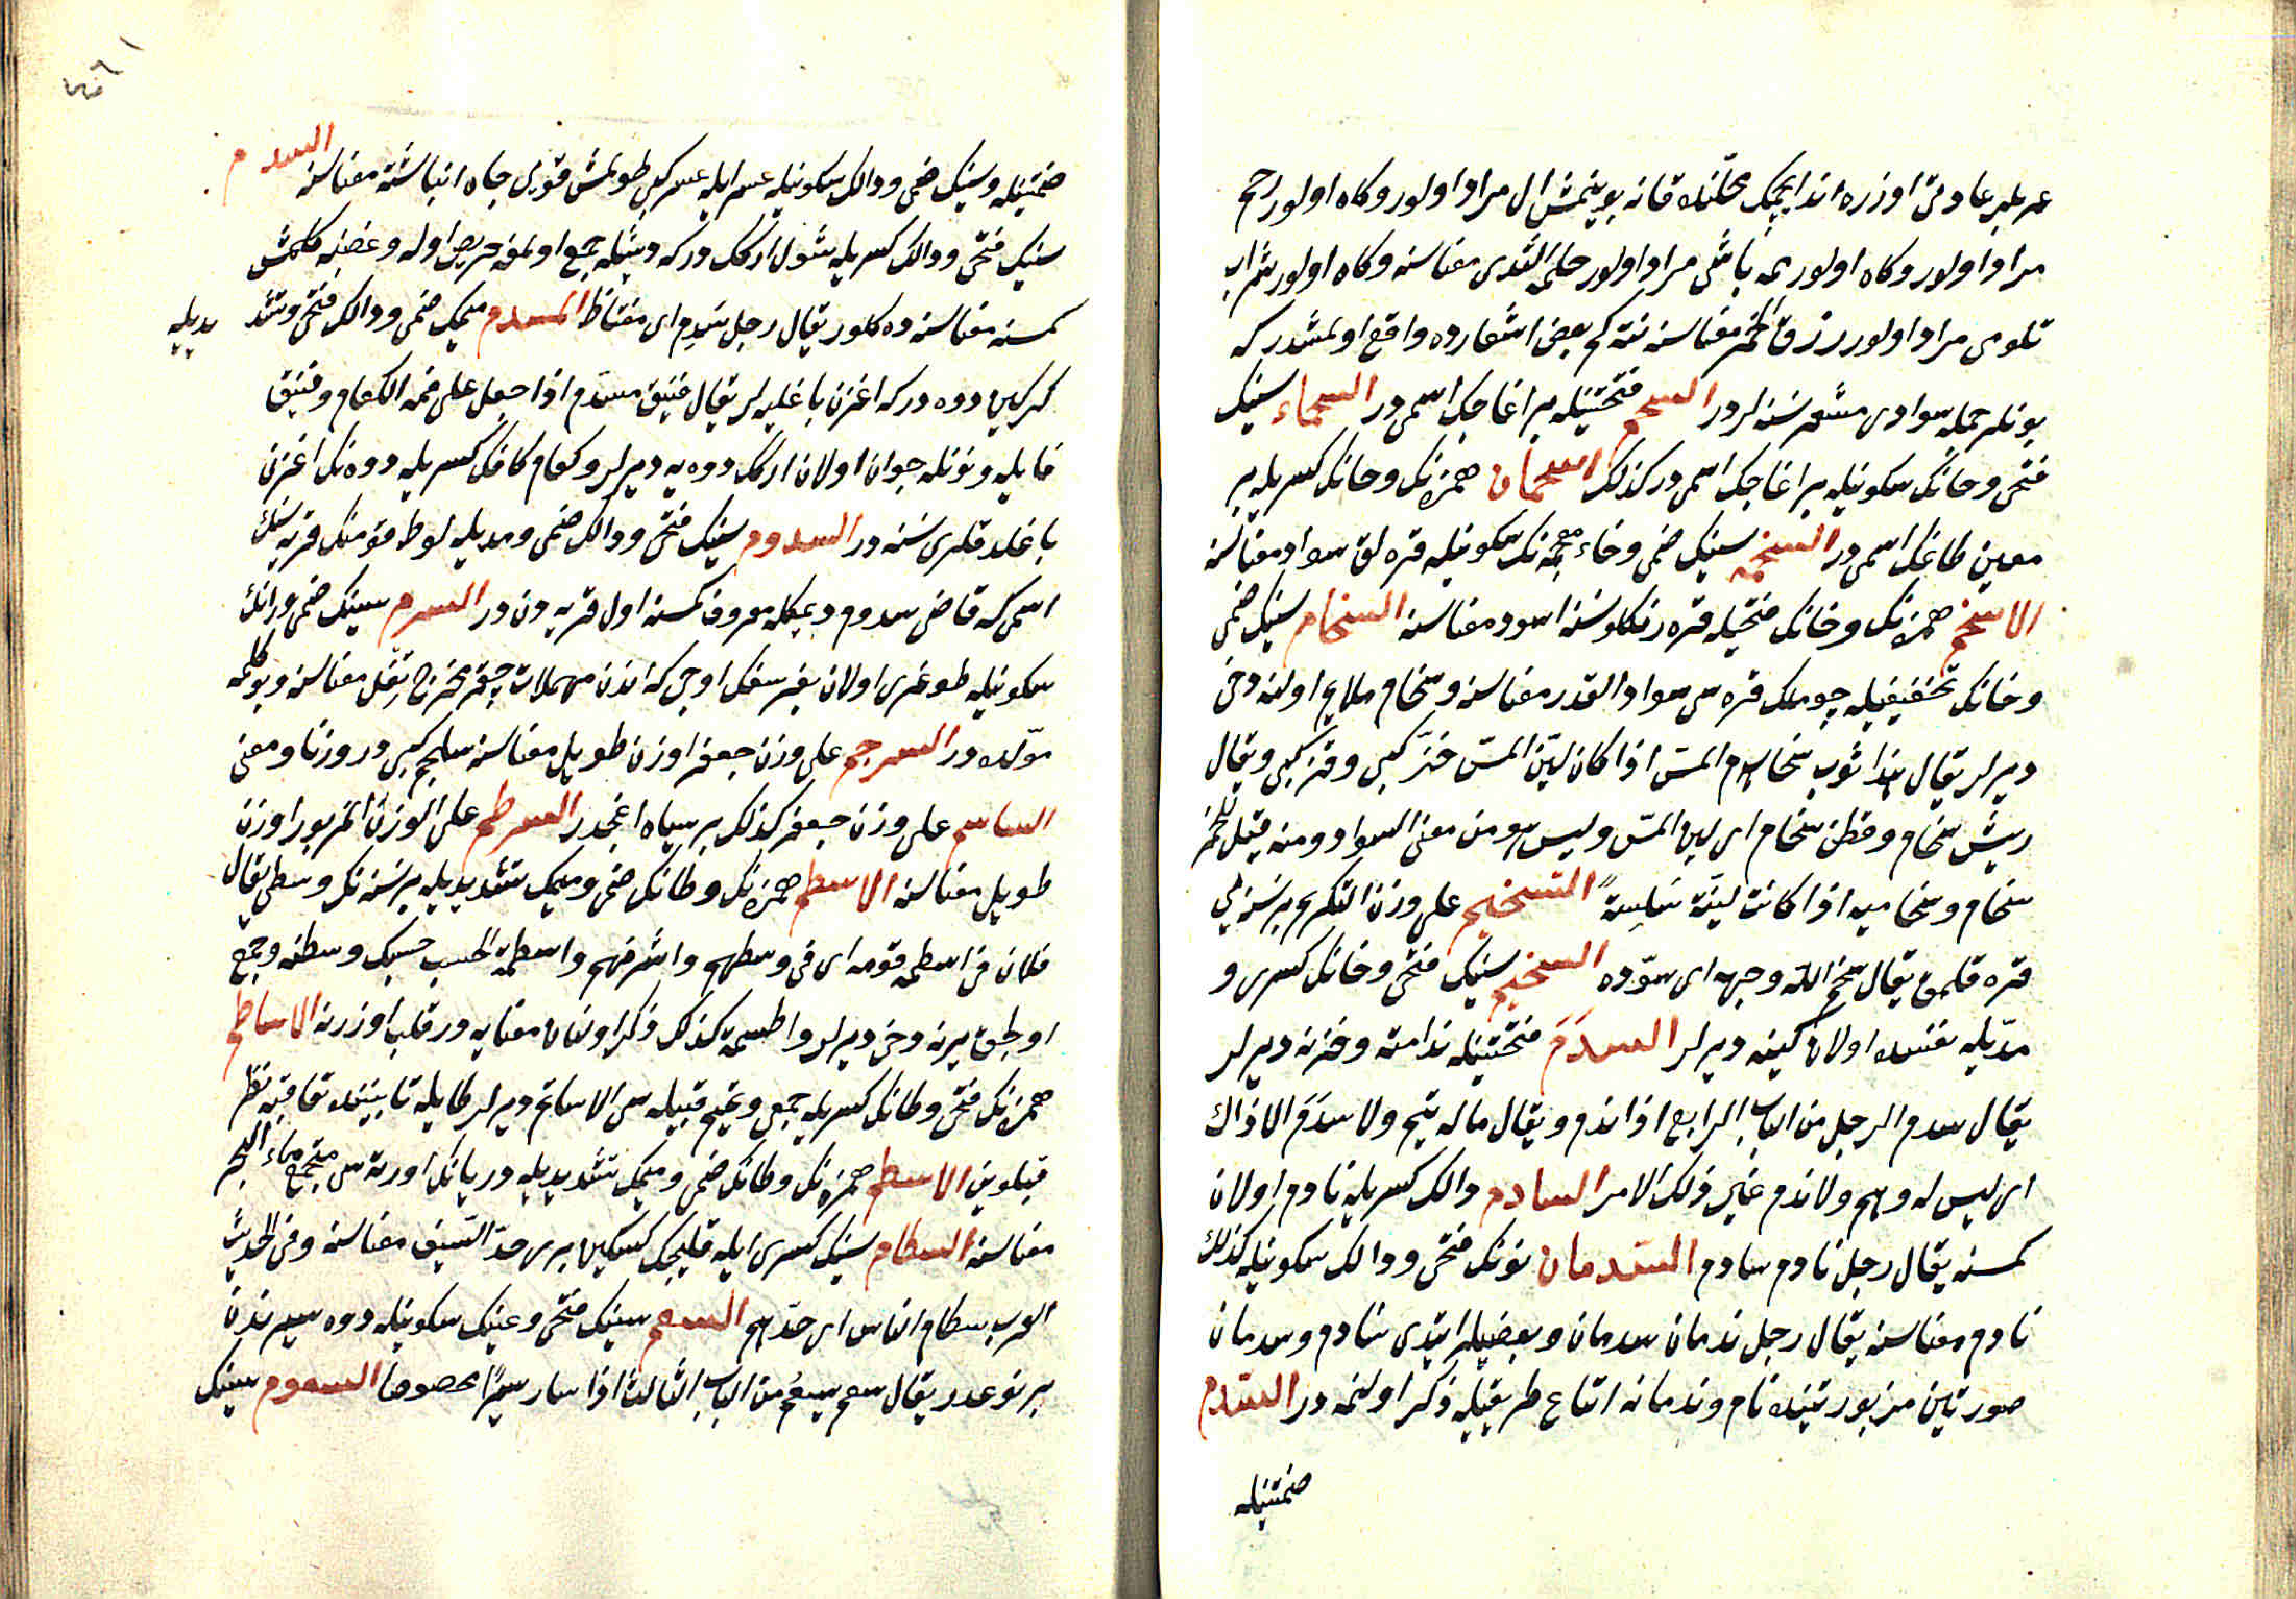 عربلر عادتى اوزره اند ايچك محلنده قانه بوينمش ال مراد اولور وكاه اولور رحم
مراد اولور وكاه اولور مه باشى مراد اولور حلمة الثدى معناسنه وكاه اولور شراب
تلومى مراد اولور زق الخمر معناسنه نته كم بعض اشعارده واقع اولمشدر كه
بونلر جمله سوادى مشعر نسنه لردر السحم فتحتينله بر اغاجك اسمى در السحماء سينك
فتحى وحانك سكونيله بر اغاجك اسمى در كذلك اسحمان همزه نك وحانك كسريله بر
معين طاغك اسمى در السخمه سينك ضمى وخاء معجمه نك سكونيله قره لق سواد معناسنه
الاسخم همزه نك وخانك فتحيله قره رنكلو نسنه اسود معناسنه السخام سينك ضمى
وخانك تخفيفيله چوملك قره سى سواد القدر معناسنه وسخام ملايم اولنه دخى
ديرلر يقال هذا ثوب سخام المس اذا كان لين المس خز كبى وقز كبى ويقال
ريش سخام وقطن سخام اى لين المس وليس هو من معنى السواد ومنه قيل للخمر
سخام وسخاميه اذا كانت لينة سلسة التسخيم على وزن التكريم بر نسنه يى
قره قلمق يقال سخم الله وجهه اى سوده السخيم سينك فتحى وخانك كسرى و
مديله نفسده اولان كينه ديرلر السدم فتحتينله ندامته وحزنه ديرلر
يقال سدم الرجل من الباب الرابع اذا ندم ويقال ما له هم ولا سدم الا ذاك
اى ليس له وهم ولا ندم غير ذلك الامر السادم دالك كسريله نادم اولان
كمسنه يقال رجل نادم سادم السدمان نونك فتحى ودالك سكونيله كذلك
نادم معناسنه يقال رجل ندمان سدمان وبعضيلر ايتدى سادم وسدمان
صورتين مزبورتينده نادم وندمانه اتباع طريقيله ذكر اولنمه در السدم
ضمتينله
ضمتينله وسينك ضمى ودالك سكونيله عسر ايله عسر كبى طولمش قويى جاه انباشته معناسنه السدم
سينك فتحى ودالك كسريله شول ارككدركه ديشيله جمع اولمغه حريص اوله وغضبه كلمش
كمسنه معناسنه ده كلور يقال رجل سدم اى مغتاظ المسدم ميمك ضمى ودالك فتحى وتشديديله
دوه دركه اغزن باغليه لر يقال فنيق مسدم اذا جعل على فمه الكعام وفنيق
فايله ونونله جوان اولان اركك دوه يه ديرلر وكعام كافك كسريله دوه نك اغزن
باغلدقلرى نسنه در السدوم سينك فتحى ودالك ضمى ومديله لوط قومنك قريه سنك
اسمى كه قاضى سدوم ديمكله معروف كمسنه اول قريه دن در السرم سينك ضمى ورانك
سكونيله طوغرى اولان بغرسغك اوجى كه اندن مهملات چقر مخرج ثفل معناسنه وبو كلمه
مولده در السرجم على وزن جعفر اوزن طويل معناسنه سلجم كبى در وزنا ومعنى
الساسم على وزن جعفر كذلك بر سياه اغجدر السرطم على الوزن المزبور اوزن
طويل معناسنه الاسطم همزه نك وطانك ضمى وميمك تشديديله بر نسنه نك وسطى يقال
فلان فى اسطمة قومه اى فى وسطهم واشرفهم واسطمة الحسب حسبك وسطنه وجمع
اولجق يرنه دخى ديرلر واطسمة كذلك ذكر اولنان معنايه در قلب اوزرنه الاساطم
همزه نك فتحى وطانك كسريله جمعى وتميم قبيله سى الاساتم ديرلر طايله تا بيننده تعاقبه نظر
قيلوين الاسطم همزه نك وطانك ضمى وميمك تشديديله دريانك اورته سى مجتمع ماء البحر
معناسنه السطام سينك كسرى ايله قليجك كسكين يرى حد السيف معناسنه وفى الحديث
العرب سطام الناس اى حدهم السعم سينك فتحى وعينك سكونيله دوه سيرندن
بر نوعدر يقال سعم يسعم من الباب الثالث اذا سار سيرا مخصوصا السعوم سينك